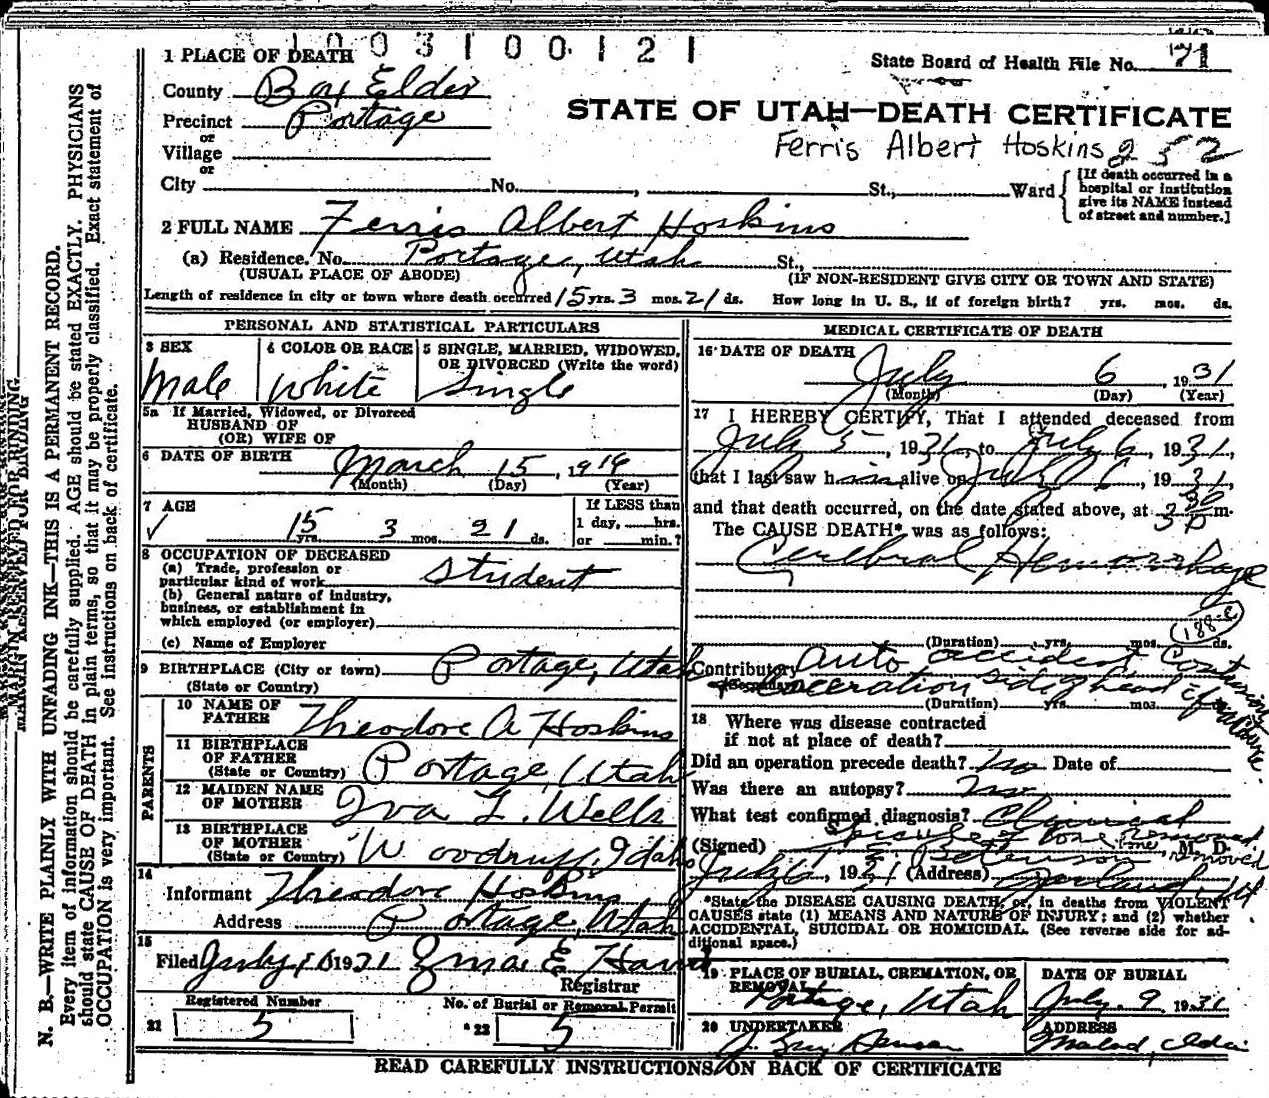 1003100121
1 PLACE OF DEATH
State Board of Health File No. 71
County Box Elder
STATE OF UTAH—DEATH CERTIFICATE
Precinct Portage
Ferris Albert Hoskins 252
or
Village
or
City No. , St., Ward
[If death occurred in a
hospital or institution
give its NAME instead
of street and number.]
2 FULL NAME Ferris Albert Hoskins
(a) Residence. No. Portage, Utah St.,
(USUAL PLACE OF ABODE) (IF NON-RESIDENT GIVE CITY OR TOWN AND STATE)
Length of residence in city or town where death occurred 15 yrs. 3 mos. 21 ds. How long in U. S., if of foreign birth? yrs. mos. ds.
PERSONAL AND STATISTICAL PARTICULARS
3 SEX
Male
4 COLOR OR RACE
White
5 SINGLE, MARRIED, WIDOWED,
OR DIVORCED (Write the word)
Single
5a If Married, Widowed, or Divorced
HUSBAND OF
(OR) WIFE OF
6 DATE OF BIRTH
March 15, 1916
(Month) (Day) (Year)
7 AGE
15 yrs. 3 mos. 21 ds.
If LESS than
1 day, hrs.
or min.?
8 OCCUPATION OF DECEASED
(a) Trade, profession or
particular kind of work Student
(b) General nature of industry,
business, or establishment in
which employed (or employer)
(c) Name of Employer
9 BIRTHPLACE (City or town) Portage, Utah
(State or Country)
PARENTS
10 NAME OF
FATHER Theodore A Hoskins
11 BIRTHPLACE
OF FATHER
(State or Country) Portage, Utah
12 MAIDEN NAME
OF MOTHER Iva L. Wells
13 BIRTHPLACE
OF MOTHER
(State or Country) Woodruff, Idaho
14
Informant Theodore Hoskins
Address Portage, Utah
15
Filed July 1931
Registrar
Registered Number
21 5
No. of Burial or Removal Permit
22 5
MEDICAL CERTIFICATE OF DEATH
16 DATE OF DEATH
July 6, 1931
(Month) (Day) (Year)
17 I HEREBY CERTIFY, That I attended deceased from
July 5, 1931, to July 6, 1931,
that I last saw him alive on July 6, 1931,
and that death occurred, on the date stated above, at 3 30 P m.
The CAUSE DEATH* was as follows:
Cerebral Hemorrhage
188-c
(Duration) yrs. mos. ds.
Contributory Auto accident Contusions
(Secondary) laceration side of head
(Duration) yrs. mos.
18 Where was disease contracted
if not at place of death?
Did an operation precede death? No Date of
Was there an autopsy? No
What test confirmed diagnosis? Clinical
Spicules of bone removed
(Signed) M. D.
bone removed
July 6, 1931 (Address) Garland Ut
*State the DISEASE CAUSING DEATH, or, in deaths from VIOLENT
CAUSES state (1) MEANS AND NATURE OF INJURY; and (2) whether
ACCIDENTAL, SUICIDAL OR HOMICIDAL. (See reverse side for ad-
ditional space.)
19 PLACE OF BURIAL, CREMATION, OR
REMOVAL
Portage, Utah
DATE OF BURIAL
July 9 1931
20 UNDERTAKER
ADDRESS
Malad, Idaho
READ CAREFULLY INSTRUCTIONS ON BACK OF CERTIFICATE
MARGIN RESERVED FOR BINDING
N. B.—WRITE PLAINLY WITH UNFADING INK—THIS IS A PERMANENT RECORD.
Every item of information should be carefully supplied. AGE should be stated EXACTLY. PHYSICIANS
should state CAUSE OF DEATH in plain terms, so that it may be properly classified. Exact statement of
OCCUPATION is very important. See instructions on back of certificate.